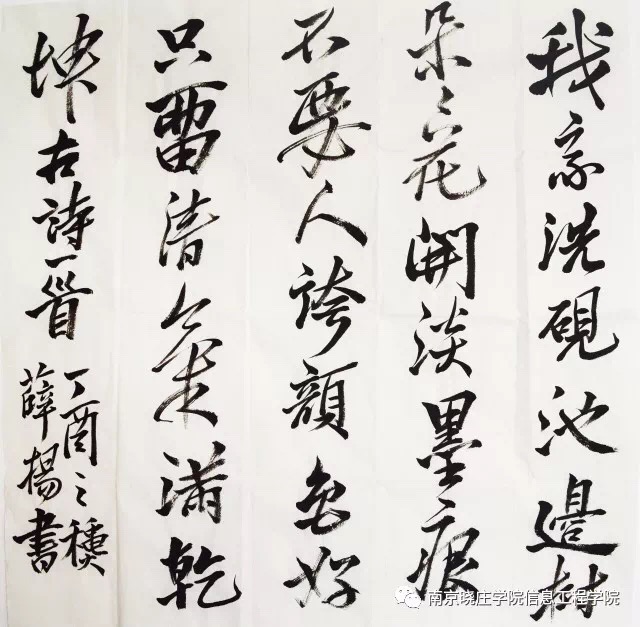 我家洗硯池邊樹
朵々花開淡墨痕
不要人誇顏色好
只畱清氣滿乾
坤古詩一首
丁酉之
薛楊書
南京晓庄学院信息工程学院